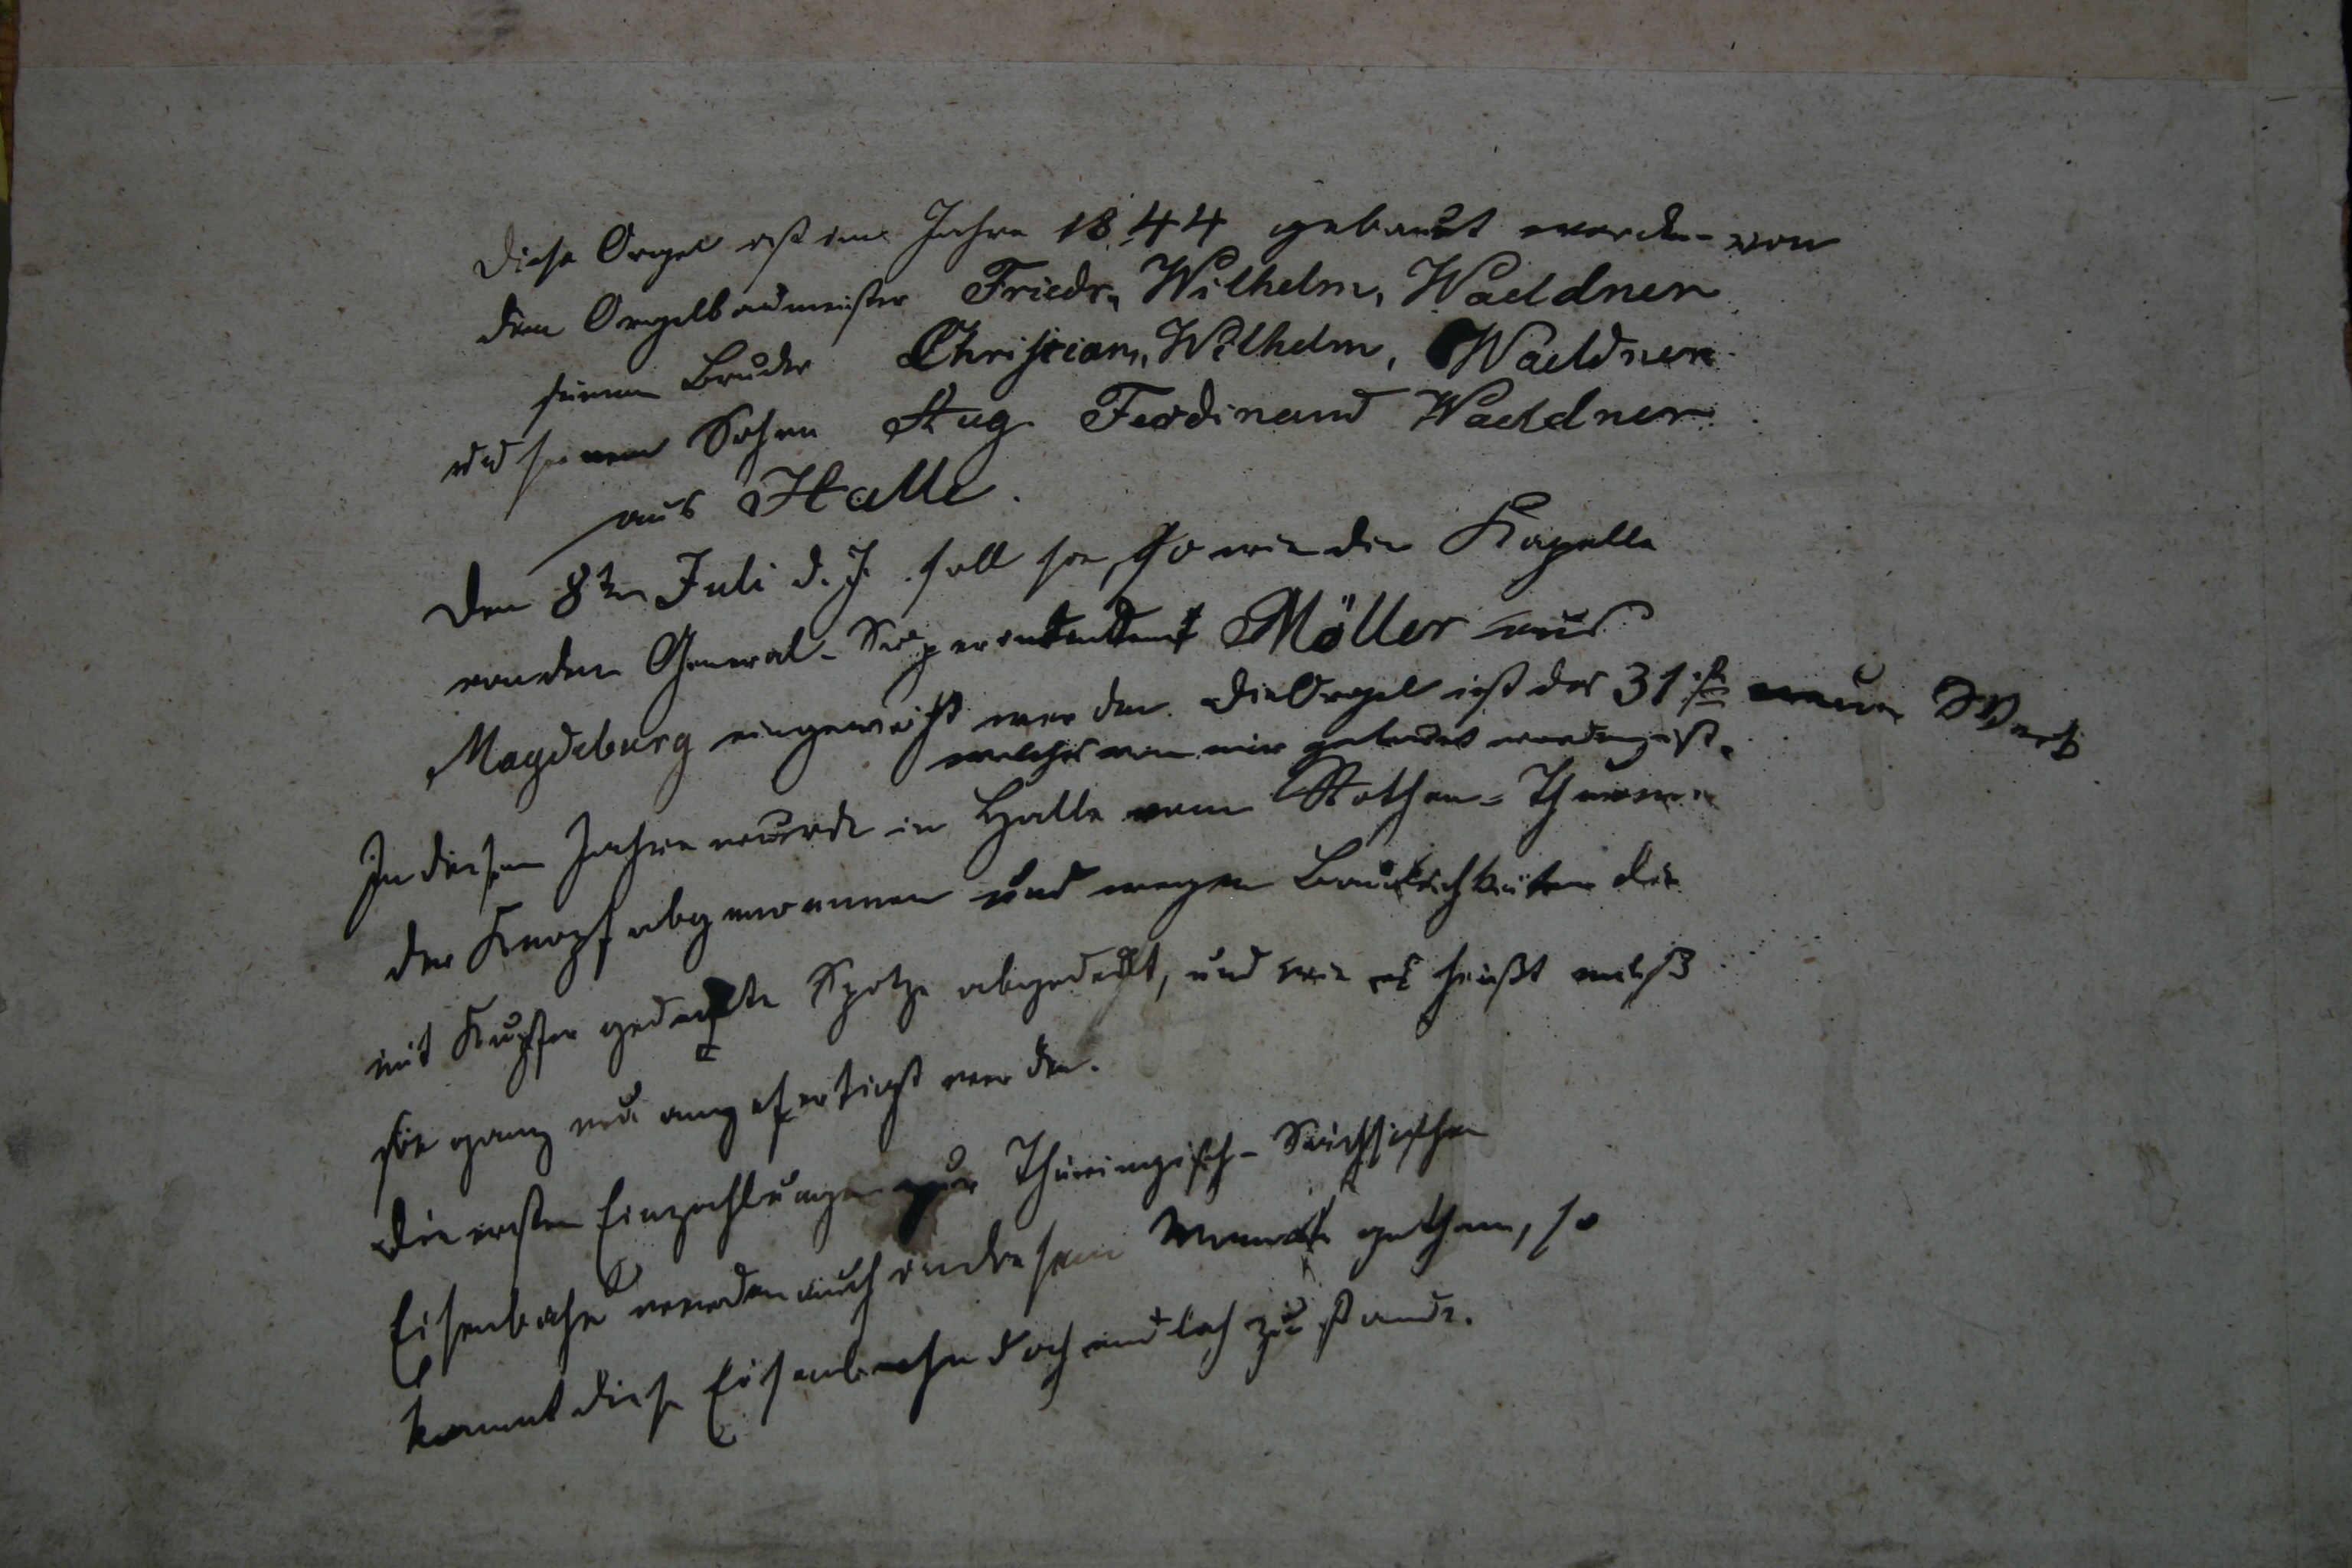 Diese Orgel ist im Jahre 1844 gebaut worden von
dem Orgelbaumeister Friedr. Wilhelm, Waeldner
seinem Bruder Christian, Wilhelm, Waeldner
und seinem Sohne Aug. Ferdinand Waeldner
aus Halle.
Den 8ten Juli d. J. soll sie, so wie die Kapelle
von dem General-Superintendent Möller aus
Magdeburg eingeweiht werden. Die Orgel ist das 31ste neue Werk
welches von mir gebaut worden ist.
In diesem Jahre wurde in Halle vom Rothen-Thurm
der Knopf abgenommen und wegen Baulichkeiten die
mit Kupfer gedeckte Spitze abgedeckt, und wie es heißt muß
sie ganz neu angefertigt werden.
Die ersten Einzahlungen zur Thüringisch-Sächsischen
Eisenbahn werden auch in diesem Monat gethan, so
kommt diese Eisenbahn doch endlich zu stande.